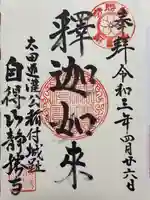 奉拝
令和三年四月廿六日
釋迦如来
太田道灌公稲付城跡
自得山静勝寺